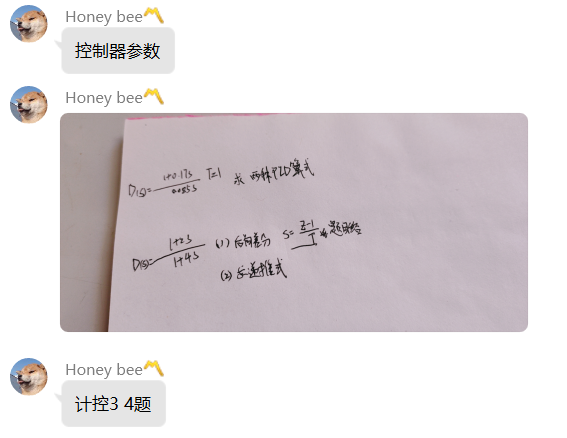 Honey bee
控制器参数
Honey bee
D(s)= 1+0.17s / 0.085s T=1 求 两种PID算式
D(s)= 1+2s / 1+4s (1) 后向差分 S= z-1 / T
(2) 递推式
Honey bee
计控3 4题